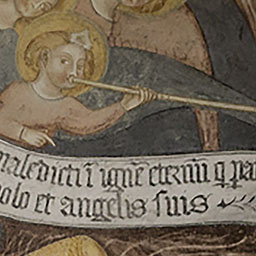 maledicti ī ignē eternū q pa
olo et angelis suis